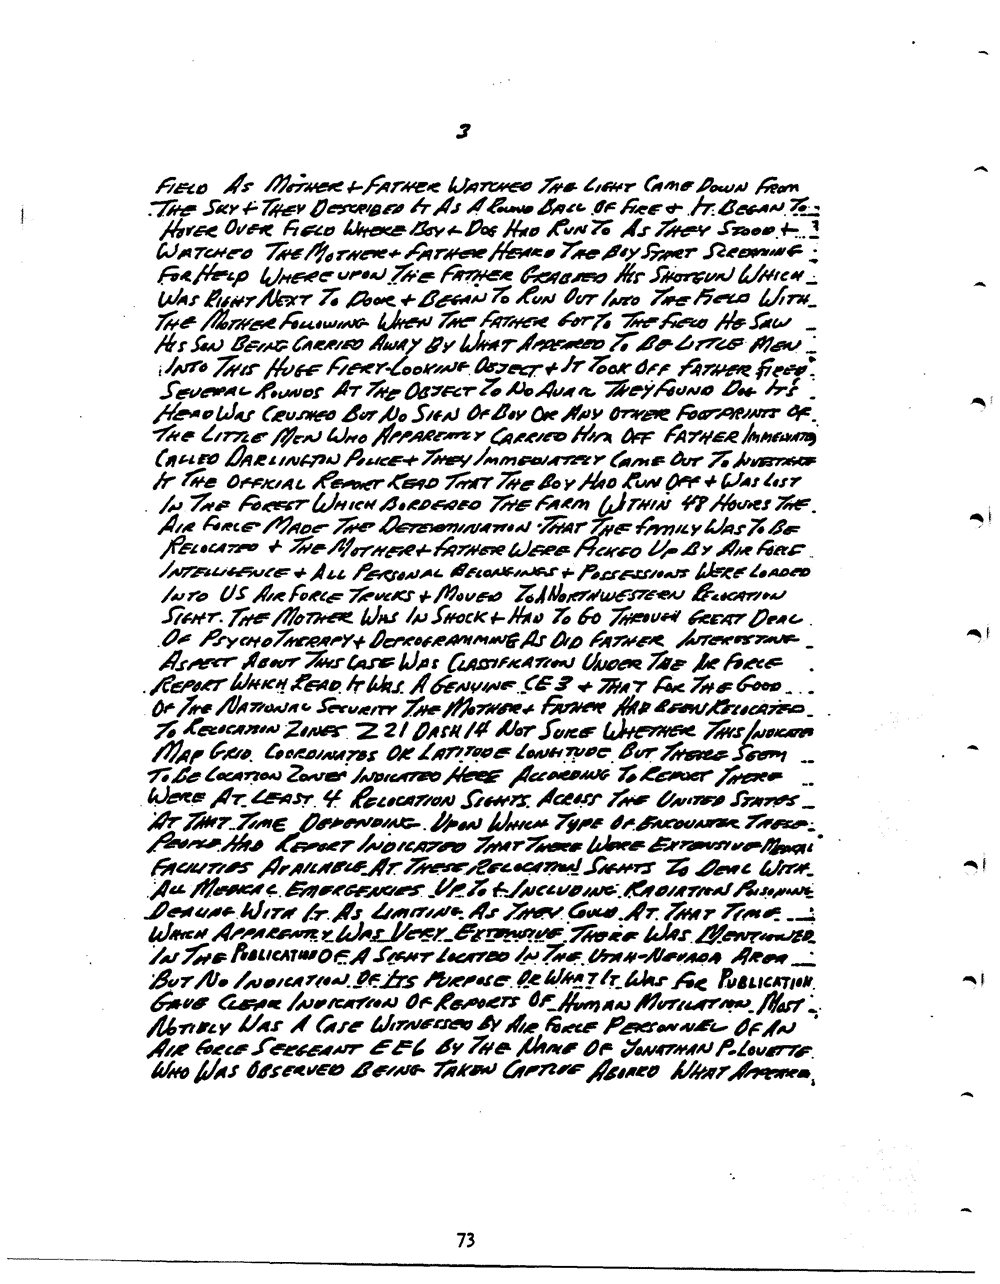 3
FIELD AS MOTHER + FATHER WATCHED THE LIGHT CAME DOWN FROM
THE SKY + THEY DESCRIBED IT AS A ROUND BALL OF FIRE + IT BEGAN TO
HOVER OVER FIELD WHERE BOY + DOG HAD RUN TO AS THEY STOOD +
WATCHED THE MOTHER + FATHER HEARD THE BOY START SCREAMING
FOR HELP WHERE UPON THE FATHER GRABBED HIS SHOTGUN WHICH
WAS RIGHT NEXT TO DOOR + BEGAN TO RUN OUT INTO THE FIELD WITH
THE MOTHER FOLLOWING WHEN THE FATHER GOT TO THE FIELD HE SAW
HIS SON BEING CARRIED AWAY BY WHAT APPEARED TO BE LITTLE MEN
INTO THIS HUGE FIERY-LOOKING OBJECT + IT TOOK OFF FATHER FIRED
SEVERAL ROUNDS AT THE OBJECT TO NO AVAIL THEY FOUND DOG IT'S
HEAD WAS CRUSHED BUT NO SIGN OF BOY OR ANY OTHER FOOTPRINTS OF
THE LITTLE MEN WHO APPARENTLY CARRIED HIM OFF FATHER IMMEDIATELY
CALLED DARLINGTON POLICE + THEY IMMEDIATELY CAME OUT TO INVESTIGATE
IT THE OFFICIAL REPORT READ THAT THE BOY HAD RUN OFF + WAS LOST
IN THE FOREST WHICH BORDERED THE FARM WITHIN 48 HOURS THE
AIR FORCE MADE THE DETERMINATION THAT THE FAMILY WAS TO BE
RELOCATED + THE MOTHER + FATHER WERE PICKED UP BY AIR FORCE
INTELLIGENCE + ALL PERSONAL BELONGINGS + POSSESSIONS WERE LOADED
INTO US AIR FORCE TRUCKS + MOVED TO A NORTHWESTERN RELOCATION
SIGHT. THE MOTHER WAS IN SHOCK + HAD TO GO THROUGH GREAT DEAL
OF PSYCHOTHERAPY + DEPROGRAMMING AS DID FATHER INTERESTING
ASPECT ABOUT THIS CASE WAS CLASSIFICATION UNDER THE AIR FORCE
REPORT WHICH READ IT WAS A GENUINE CE 3 + THAT FOR THE GOOD
OF THE NATIONAL SECURITY THE MOTHER + FATHER HAD BEEN RELOCATED
TO RELOCATION ZONES Z 21 DASH 14 NOT SURE WHETHER THIS INDICATES
MAP GRID COORDINATES OR LATITUDE LONGITUDE BUT THERE SEEM
TO BE LOCATION ZONES INDICATED HERE ACCORDING TO REPORT THERE
WERE AT LEAST 4 RELOCATION SIGHTS ACROSS THE UNITED STATES
AT THAT TIME DEPENDING UPON WHICH TYPE OF ENCOUNTER THESE
PEOPLE HAD REPORT INDICATED THAT THERE WERE EXTENSIVE MEDICAL
FACILITIES AVAILABLE AT THESE RELOCATION SIGHTS TO DEAL WITH
ALL MEDICAL EMERGENCIES UP TO + INCLUDING RADIATION POISONING
DEALING WITH IT AS LIMITING AS THEY COULD AT THAT TIME
WHICH APPARENTLY WAS VERY EXTENSIVE THERE WAS MENTIONED
IN THE PUBLICATION OF A SIGHT LOCATED IN THE UTAH-NEVADA AREA
BUT NO INDICATION OF ITS PURPOSE OR WHAT IT WAS FOR PUBLICATION
GAVE CLEAR INDICATION OF REPORTS OF HUMAN MUTILATION MOST
NOTIBLY WAS A CASE WITNESSED BY AIR FORCE PERSONNEL OF AN
AIR FORCE SERGEANT E E6 BY THE NAME OF JONATHAN P. LOUETTE
WHO WAS OBSERVED BEING TAKEN CAPTIVE ABOARD WHAT APPEARED
73